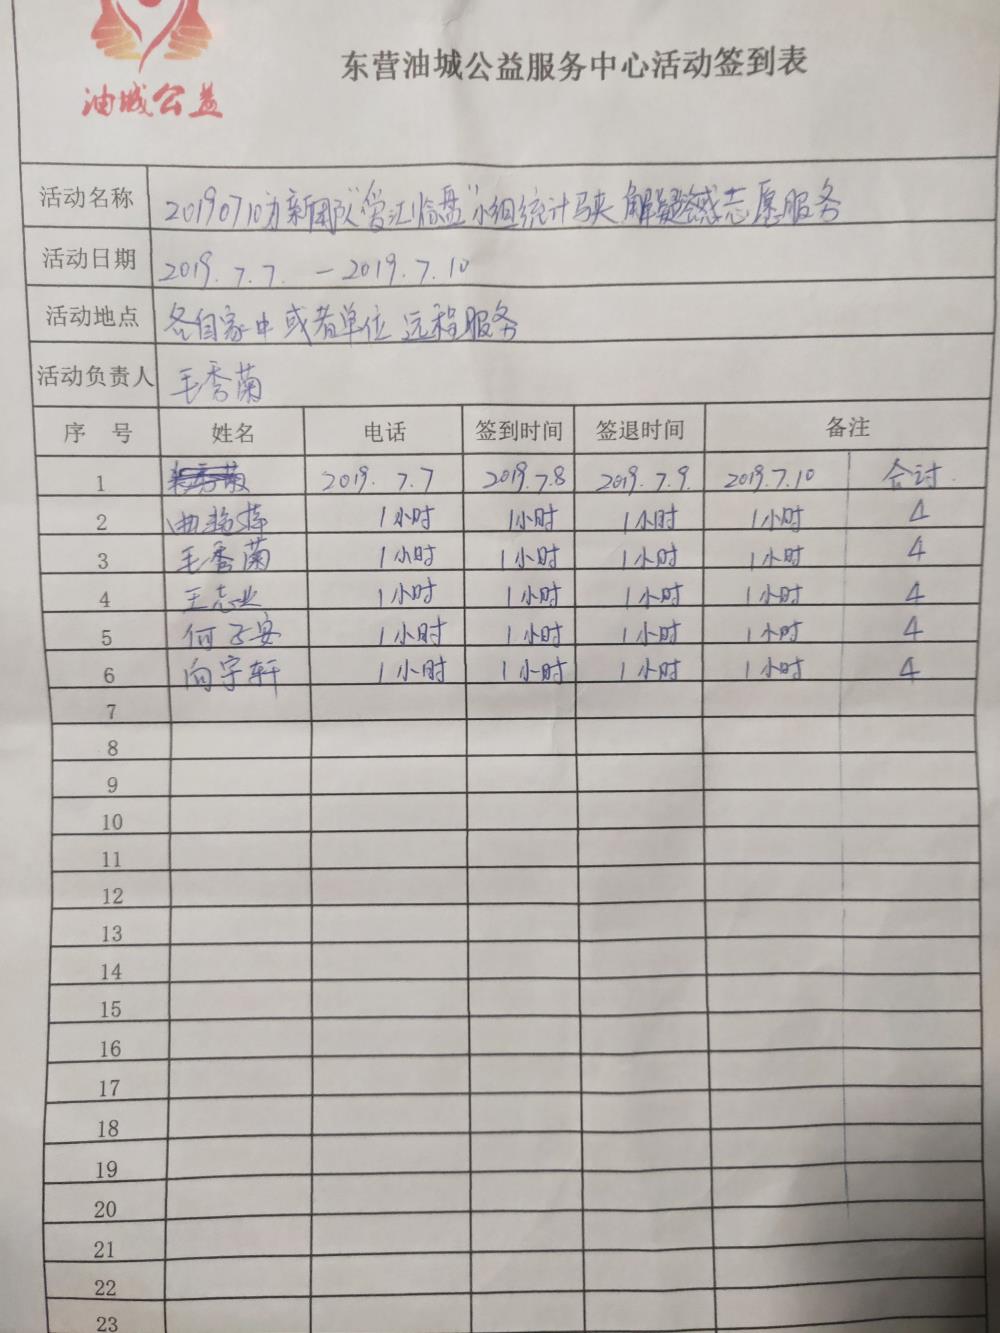 油城公益
东营油城公益服务中心活动签到表
活动名称 20190710力新团队“爱汇临盘”小组统计马夹 解疑惑志愿服务
活动日期 2019.7.7. — 2019.7.10
活动地点 各自家中或者单位 远程服务
活动负责人 毛秀菊
序 号 姓名 电话 签到时间 签退时间 备注
1 2019.7.7 2019.7.8 2019.7.9. 2019.7.10 合计.
2 1小时 1小时 1小时 1小时 4
3 毛秀菊 1小时 1小时 1小时 1小时 4
4 王志业 1小时 1小时 1小时 1小时 4
5 何子安 1小时 1小时 1小时 1小时 4
6 向宇轩 1小时 1小时 1小时 1小时 4
7
8
9
10
11
12
13
14
15
16
17
18
19
20
21
22
23